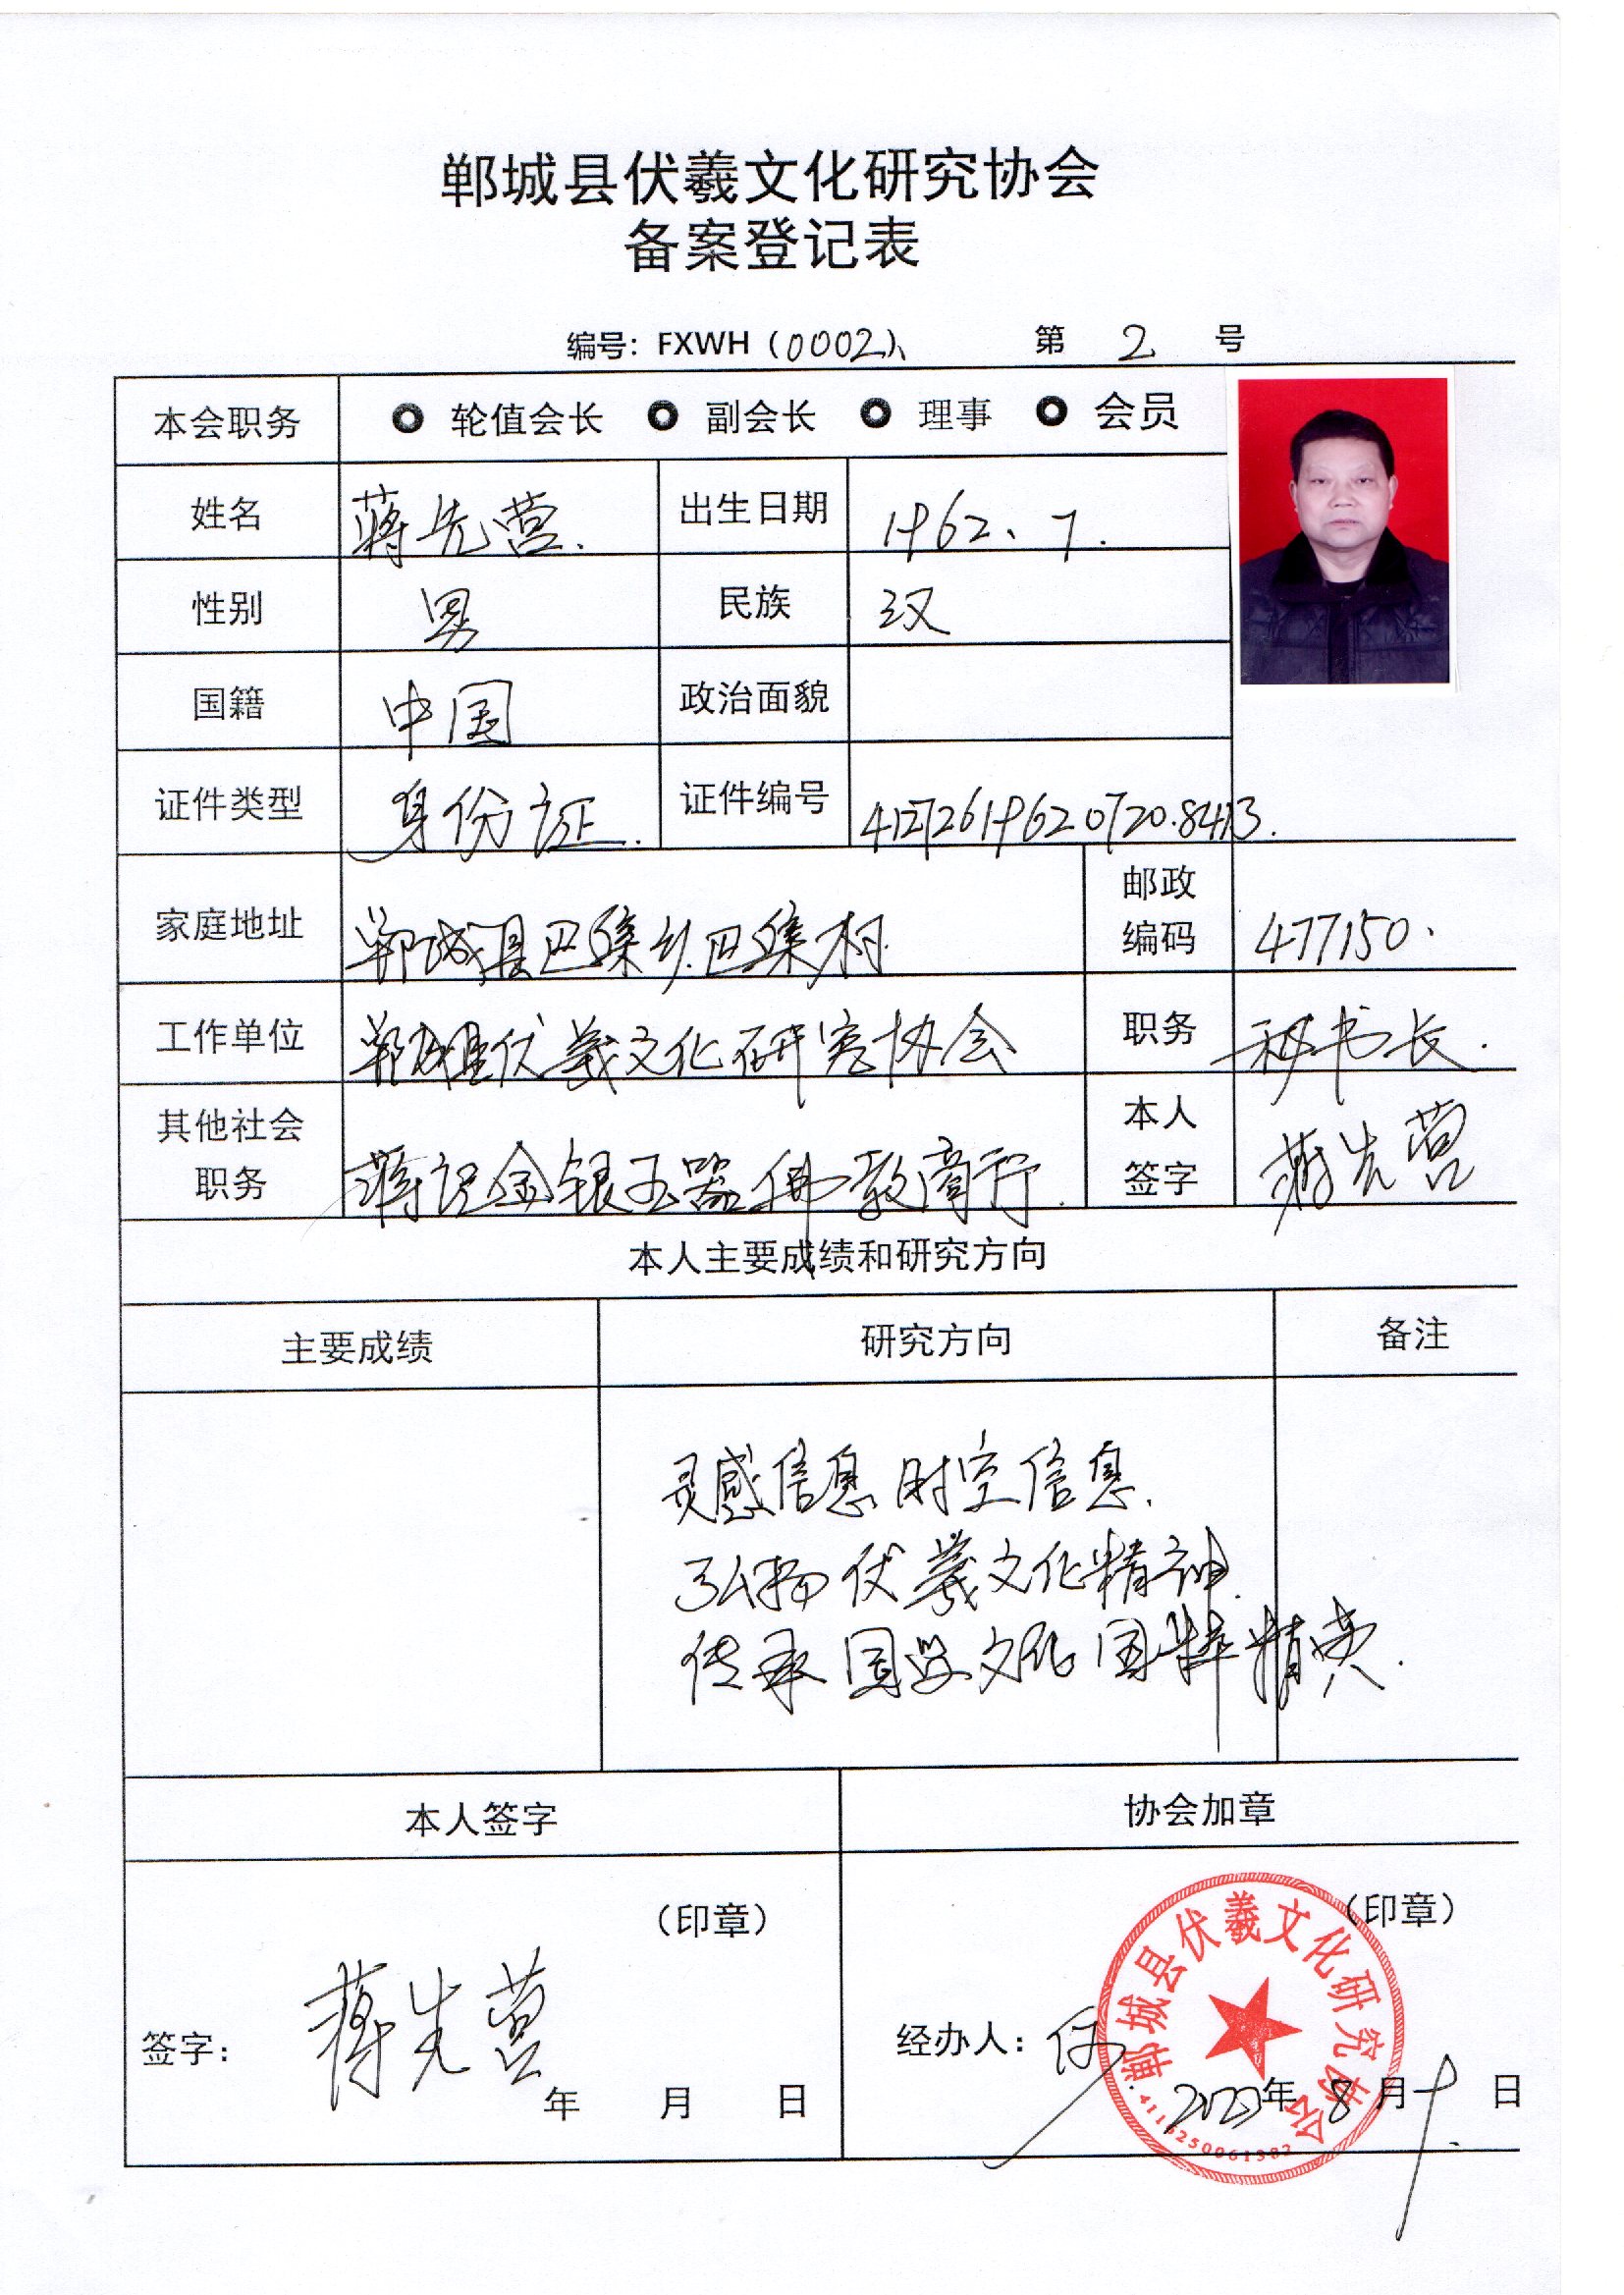 郸城县伏羲文化研究协会
备案登记表
编号：FXWH（0002）、 第 2 号
本会职务 轮值会长 副会长 理事 会员
姓名 蒋先营. 出生日期 1962、7.
性别 男 民族 汉
国籍 中国 政治面貌
证件类型 身份证. 证件编号 412726196207208413.
家庭地址 郸城县巴集乡.巴集村 邮政编码 477150.
工作单位 郸城县伏羲文化研究协会 职务 秘书长.
其他社会职务 蒋记金银玉器佛教商行. 本人签字 蒋先营
本人主要成绩和研究方向
主要成绩 研究方向 备注
灵感信息.时空信息.
弘扬伏羲文化精神.
传承国学文化国粹精英.
本人签字 协会加章
（印章） （印章）
签字： 蒋先营 经办人：
年 月 日 年 8 月 日
郸城县伏羲文化研究协会